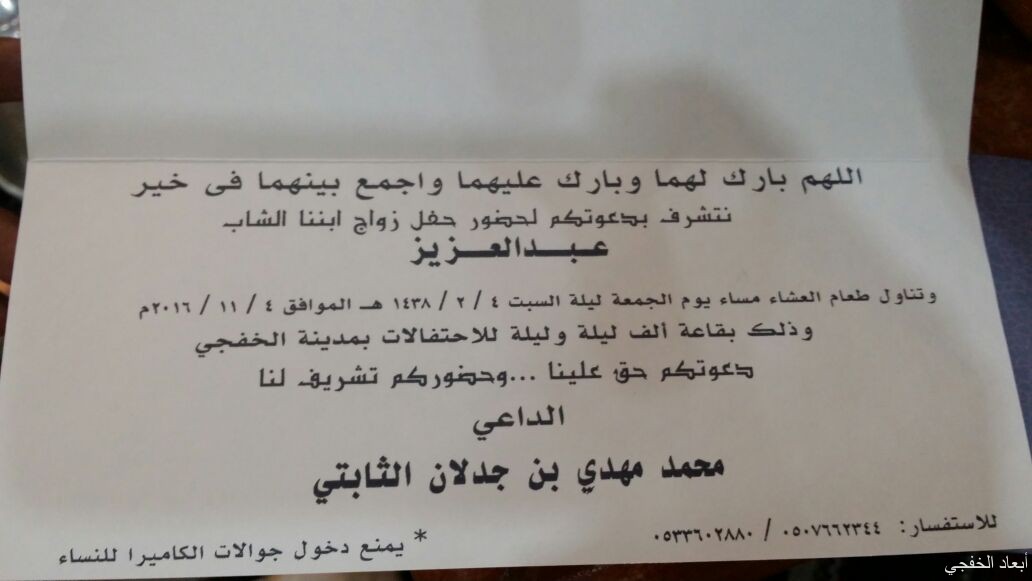 اللهم بارك لهما وبارك عليهما واجمع بينهما في خير
نتشرف بدعوتكم لحضور حفل زواج ابننا الشاب
عبدالعزيز
وتناول طعام العشاء مساء يوم الجمعة ليلة السبت ٤ / ٢ / ١٤٣٨ هـ الموافق ٤ / ١١ / ٢٠١٦م
وذلك بقاعة ألف ليلة وليلة للاحتفالات بمدينة الخفجي
دعوتكم حق علينا ...وحضوركم تشريف لنا
الداعي
محمد مهدي بن جدلان الثابتي
للاستفسار: ٠٥٠٧٦٦٢٣٤٤ / ٠٥٣٣٦٠٢٨٨٠
* يمنع دخول جوالات الكاميرا للنساء
أبعاد الخفجي